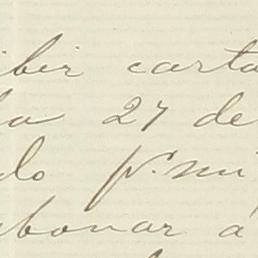 ibir carta
ha 27 de
do p. mi
bonar á